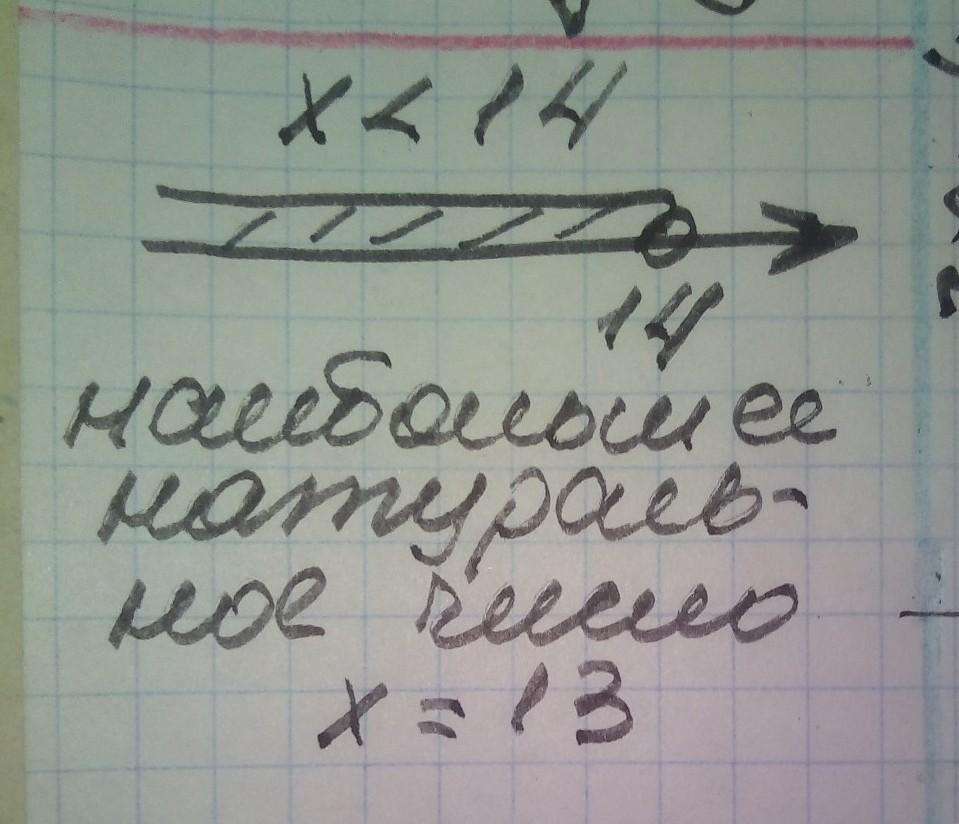 x < 14
14
наибольшее
натураль-
ное число
x = 13